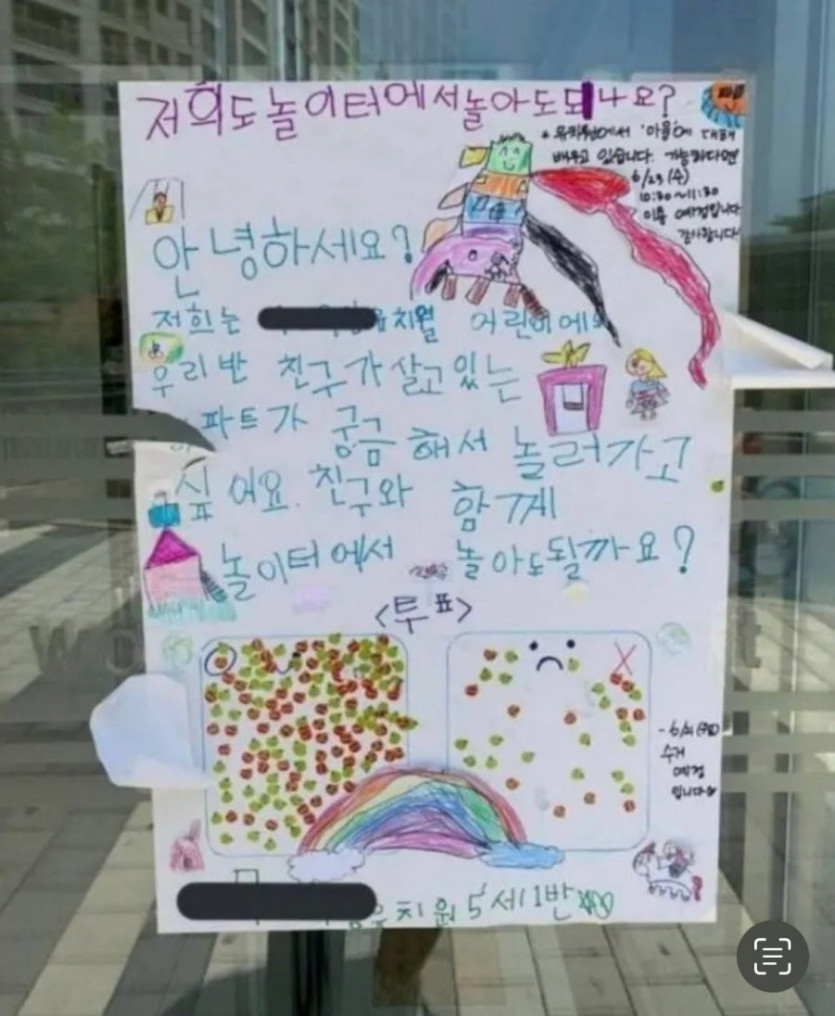 저희도놀이터에서놀아도되나요?
* 유치원에서 '마을'에 대해
배우고 있습니다. 가능하다면
6/23(수)
10:30~11:30
이용 예정입니다
감사합니다!
안녕하세요?
저희는 유치원 어린이에요
우리반 친구가 살고있는
파트가 궁금해서 놀러가고
싶어요. 친구와 함께
놀이터에서 놀아도될까요?
<투표>
O X
수거
예정
입니다
유치원 5세1반